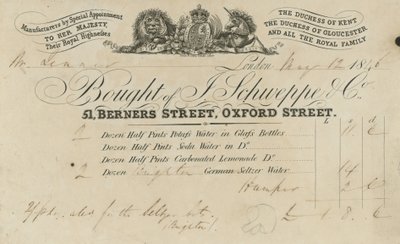 Manufacturers by Special Appointment
TO HER MAJESTY,
Their Royal Highnesses
THE DUCHESS OF KENT
THE DUCHESS OF GLOUCESTER
AND ALL THE ROYAL FAMILY
London May 12 1846
Bought of J. Schweppe & Co
51, BERNERS STREET, OXFORD STREET.
Dozen Half Pints Potass Water in Glass Bottles
Dozen Half Pints Soda Water in Do.
Dozen Half Pints Carbonated Lemonade Do.
2 Dozen German Seltzer Water 14
Hamper
for the Seltzer
£ 1 8 6